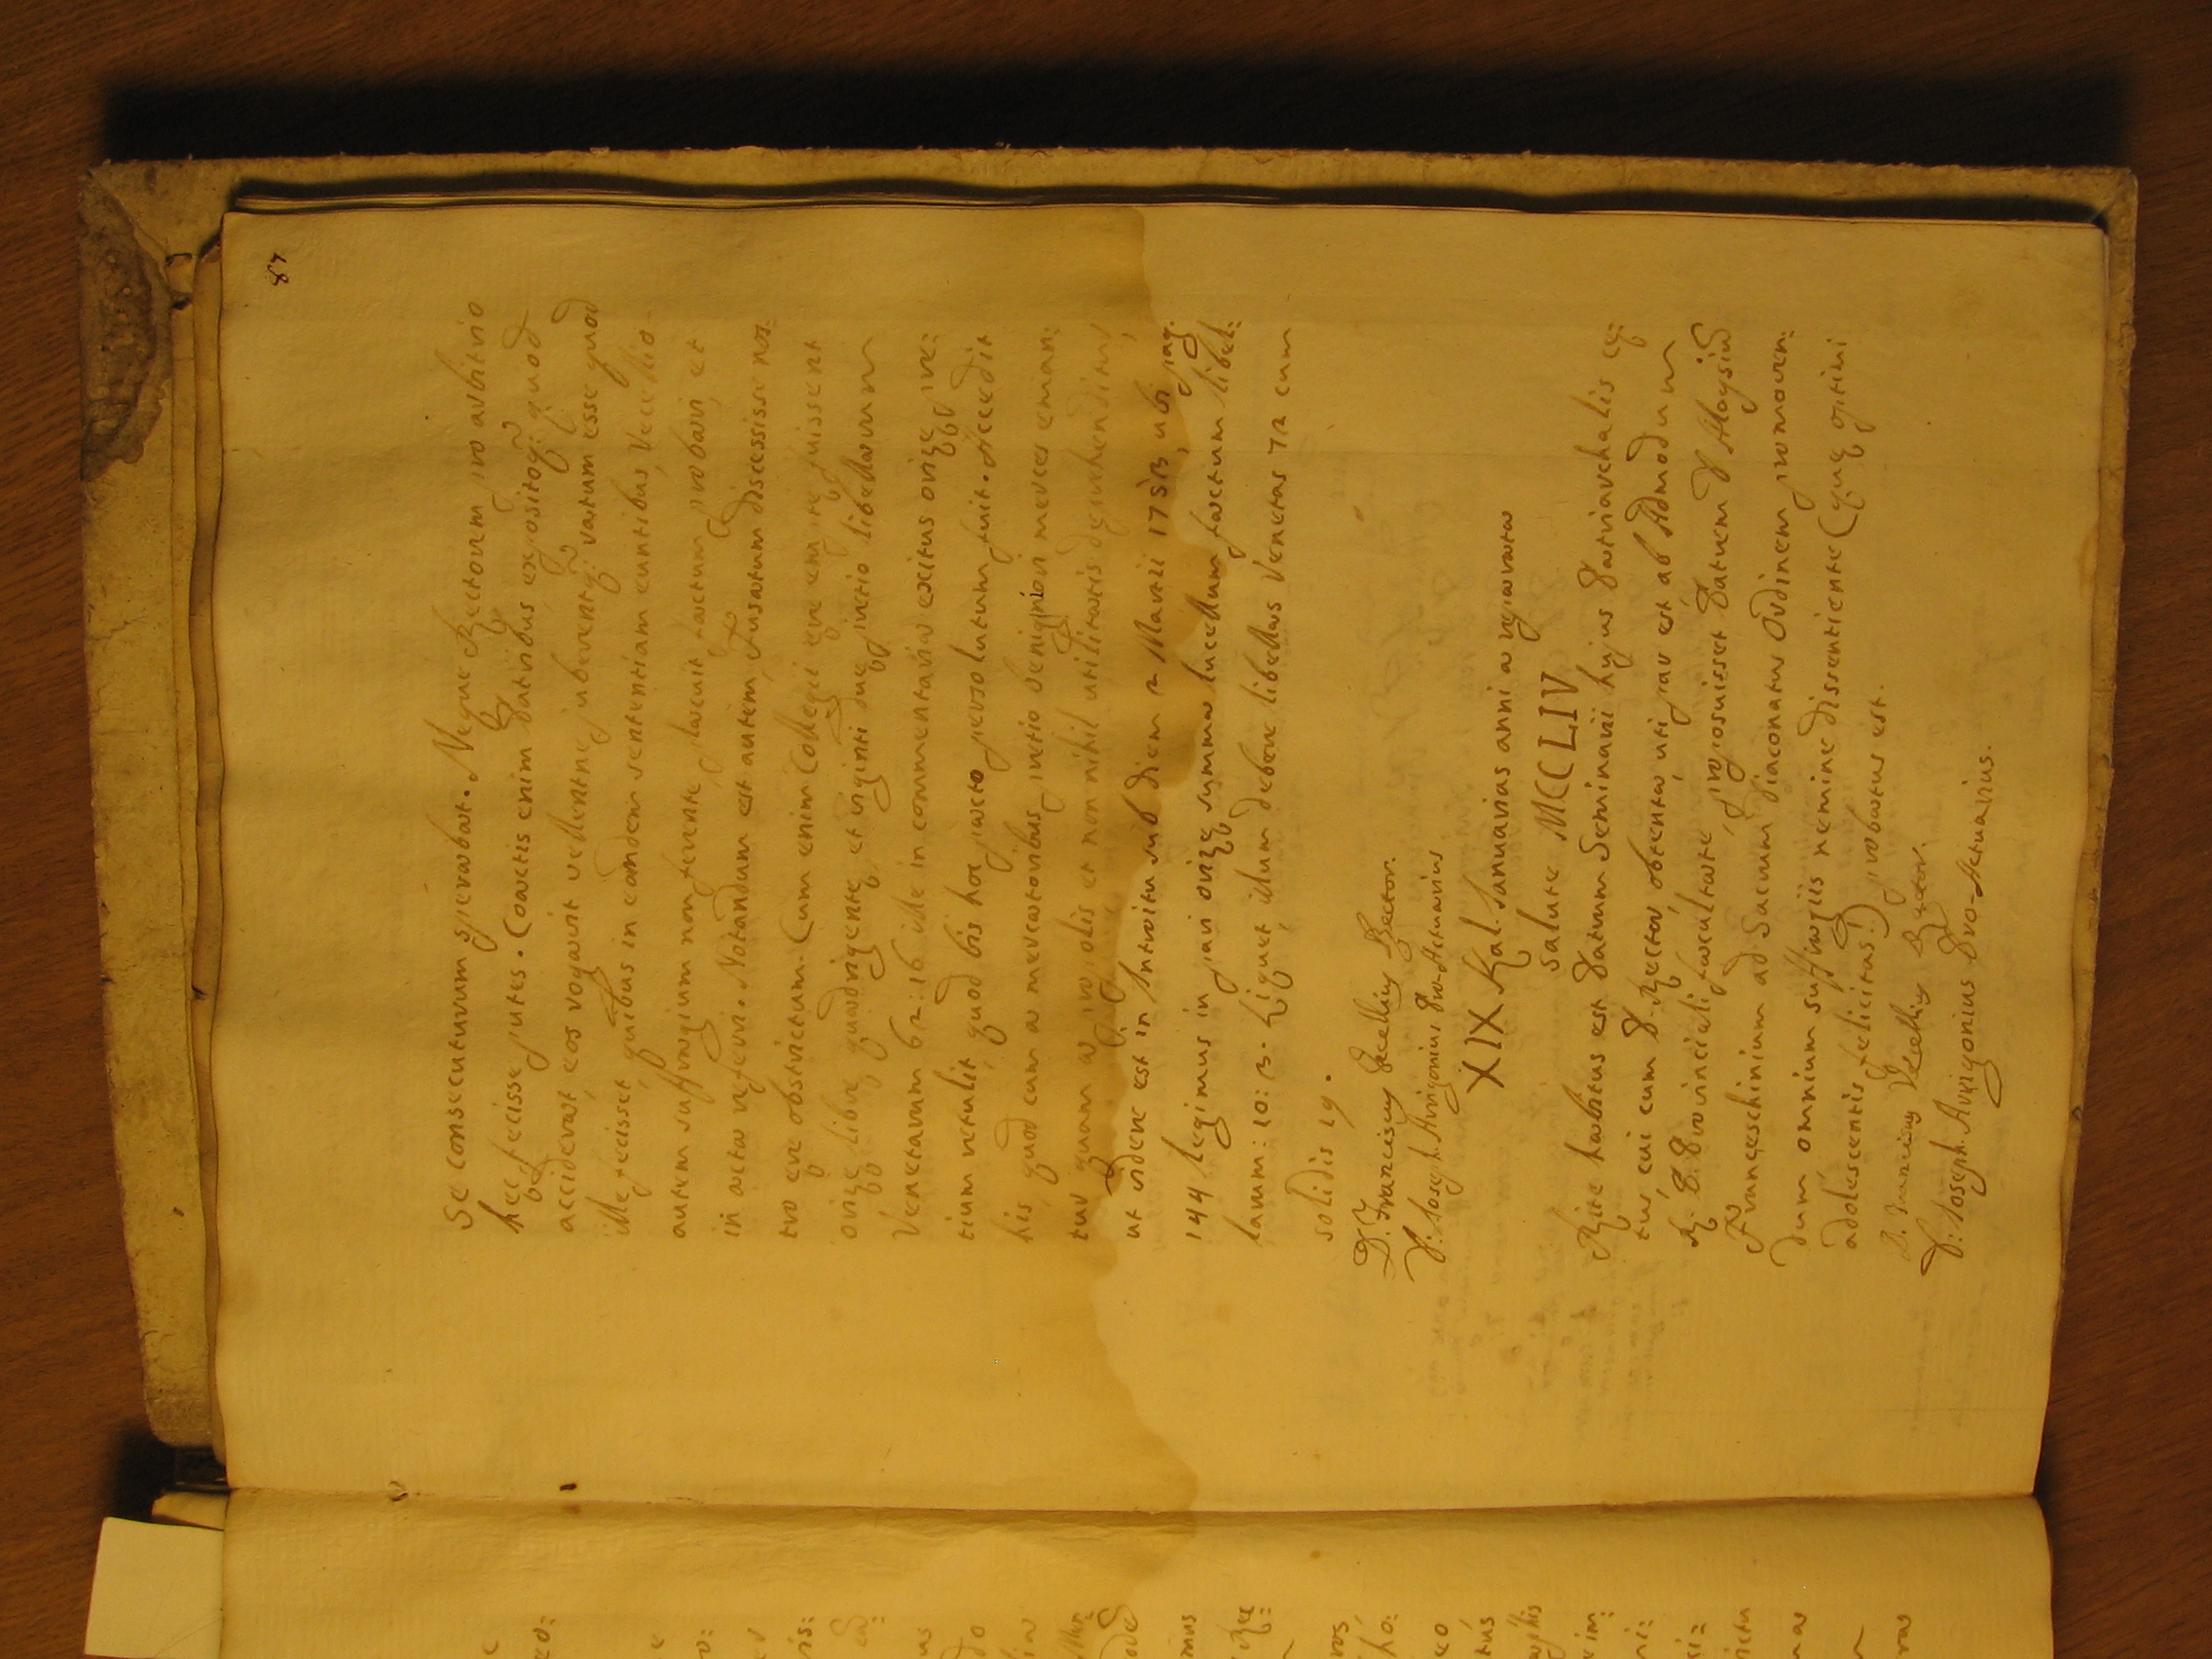 87
Se consecuturum sperabat. Neque Rectorem pro arbitrio
hęc fecisse putes. Coactis enim Patribus expositoq: quod
acciderat, eos rogavit vellentne, juberentq: ratum esse quod
ille fecisset, quibus in eamdem sententiam euntibus, Vecellio
autem suffragium non ferente, placuit factum probari, et
in acta referri. Notandum est autem, Fusatum discessisse nos:
tro ęre obstrictum. Cum enim Collegii ęre emptę fuissent
orizę librę quadrigentę et viginti duę pretio libellarum
Venetarum 62:16 ille in commentaria excitus orizę pre:
tium retulit, quod bis hoc pacto persolutum fuit. Accedit
his, quod cum a mercatoribus pretio benigniori merces eman:
tur quam a propolis et non nihil utilitatis deprehenditur,
ut videre est in Introitu sub diem 2 Martii 1753, ubi pag.
144 legimus in pari orizę summa lucellum factum libel:
larum: 10: 3. Liquet, illum debere libellas Venetas 72 cum
solidis 19.
D. Franciscus Vecellius Rector.
P. Ioseph Avrigonius Pro-Actuarius
XIX Kal. Ianuarias anni a reparata
salute MCCLIV
Rite habitus est Patrum Seminarii hujus Patriarchalis cę:
tus, cui cum P. Rector, obtenta, uti par est ab Admodum
R. P. Provinciali facultate, proposuisset Patrem D. Aloysiū
Franceschinium ad Sacrum Diaconatus Ordinem promoven:
dum, omnium suffragiis nemine dissentiente (quę optimi
adolescentis felicitas!) probatus est.
D. Franciscus Vecellius Rector.
P. Ioseph Avrigonius Pro-Actuarius.